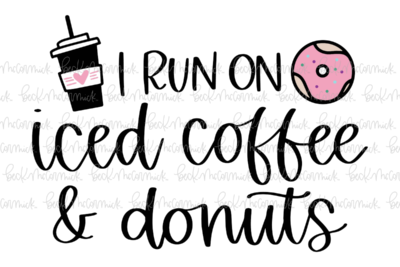 I RUN ON
iced coffee
& donuts